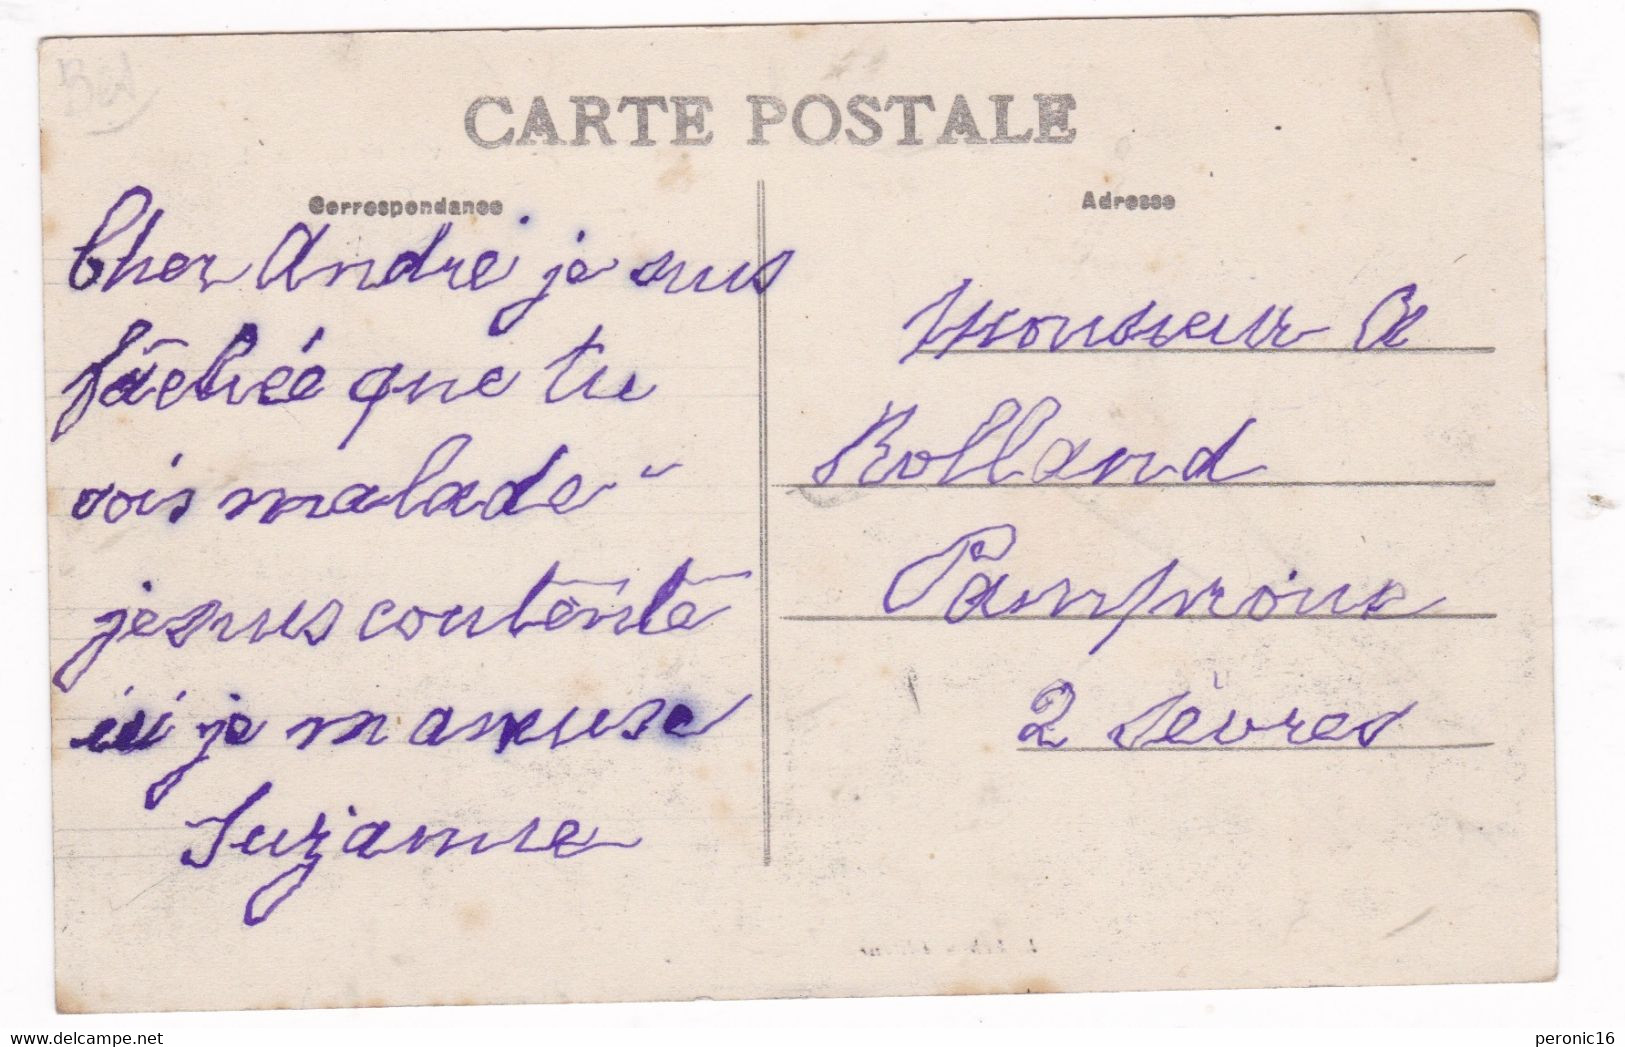 CARTE POSTALE
Correspondance
Adresse
Cher André je suis
fâchée que tu
sois malade
je suis contente
ici je m amuse
Suzanne
Monsieur A
Rolland
Pamproux
2 Sèvres
peronic16